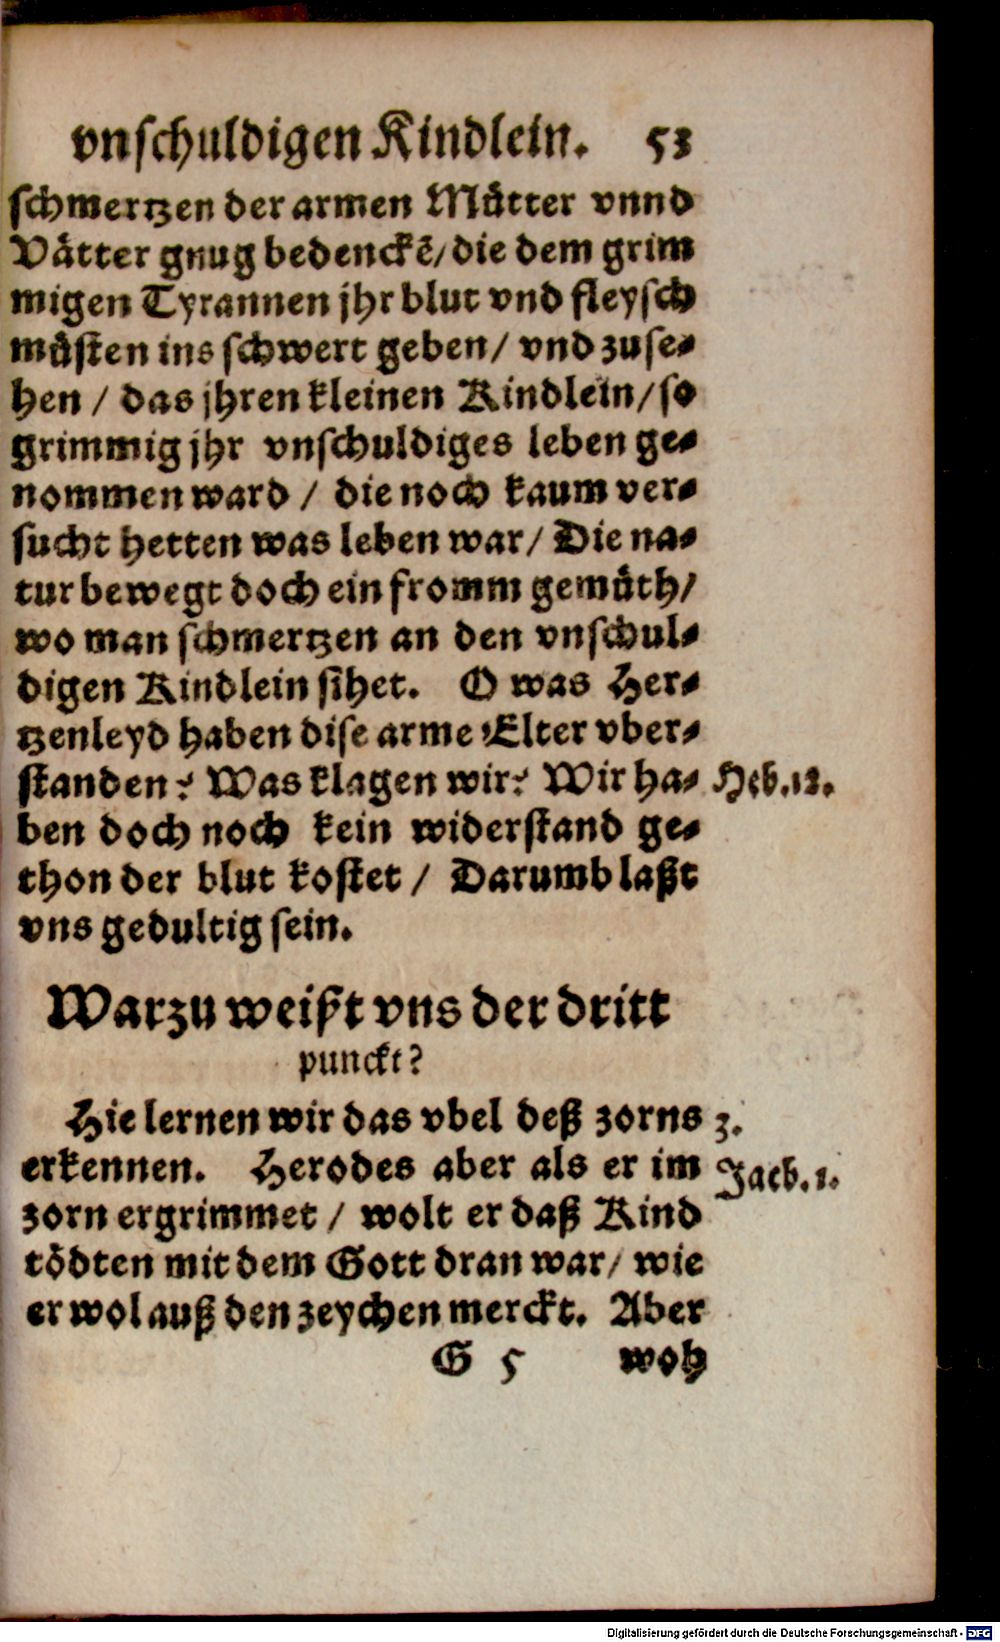 vnschuldigen Kindlein. 53
schmertzen der armen Mütter vnnd
Vätter gnug bedenckẽ/ die dem grim
migen Tyrannen jhr blut vnd fleysch
müsten ins schwert geben/ vnd zuse-
hen / das jhren kleinen Kindlein/ so
grimmig jhr vnschuldiges leben ge-
nommen ward / die noch kaum ver-
sucht hetten was leben war/ Die na-
tur bewegt doch ein fromm gemüth/
wo man schmertzen an den vnschul-
digen Kindlein sihet. O was Her-
tzenleyd haben dise arme Elter vber-
standen? Was klagen wir? Wir ha- Heb. 12.
ben doch noch kein widerstand ge-
thon der blut kostet / Darumb laßt
vns gedultig sein.
Warzu weißt vns der dritt
punckt?
Hie lernen wir das vbel deß zorns 3.
erkennen. Herodes aber als er im Jacb. 1.
zorn ergrimmet / wolt er daß Kind
tödten mit dem Gott dran war/ wie
er wol auß den zeychen merckt. Aber
G 5 woh
Digitalisierung gefördert durch die Deutsche Forschungsgemeinschaft - DFG